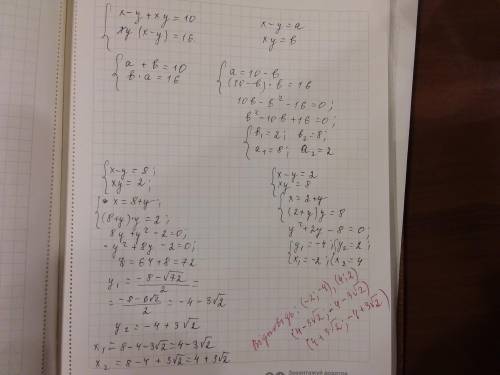 { x-y+xy=10
xy(x-y)=16
x-y=a
xy=в
{ a+в=10
в·a=16
{ a=10-в
(10-в)·в=16
10в-в²-16=0;
в²-10в+16=0;
{ в₁=2; в₂=8;
a₁=8; a₂=2
{ x-y=8;
xy=2;
{ x=8+y;
(8+y)·y=2;
8y+y²-2=0;
y²+8y-2=0;
=64+8=72
y₁=(-8-√72)/2=
=(-8-6√2)/2=-4-3√2
y₂=-4+3√2
x₁=8-4-3√2=4-3√2
x₂=8-4+3√2=4+3√2
{ x-y=2
xy=8
{ x=2+y
(2+y)y=8
y²+2y-8=0;
{ y₁=-4; { y₂=2;
x₁=-2; x₂=4
Відповідь: (-2;-4), (4;2)
(4-3√2, -4-3√2)
(4+3√2, -4+3√2)